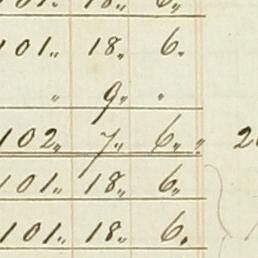 101„ 18„ 6„
101„ 18„ 6„
„ 9„ „
102„ 7„ 6„ „ 2
101„ 18„ 6„
101„ 18„ 6„